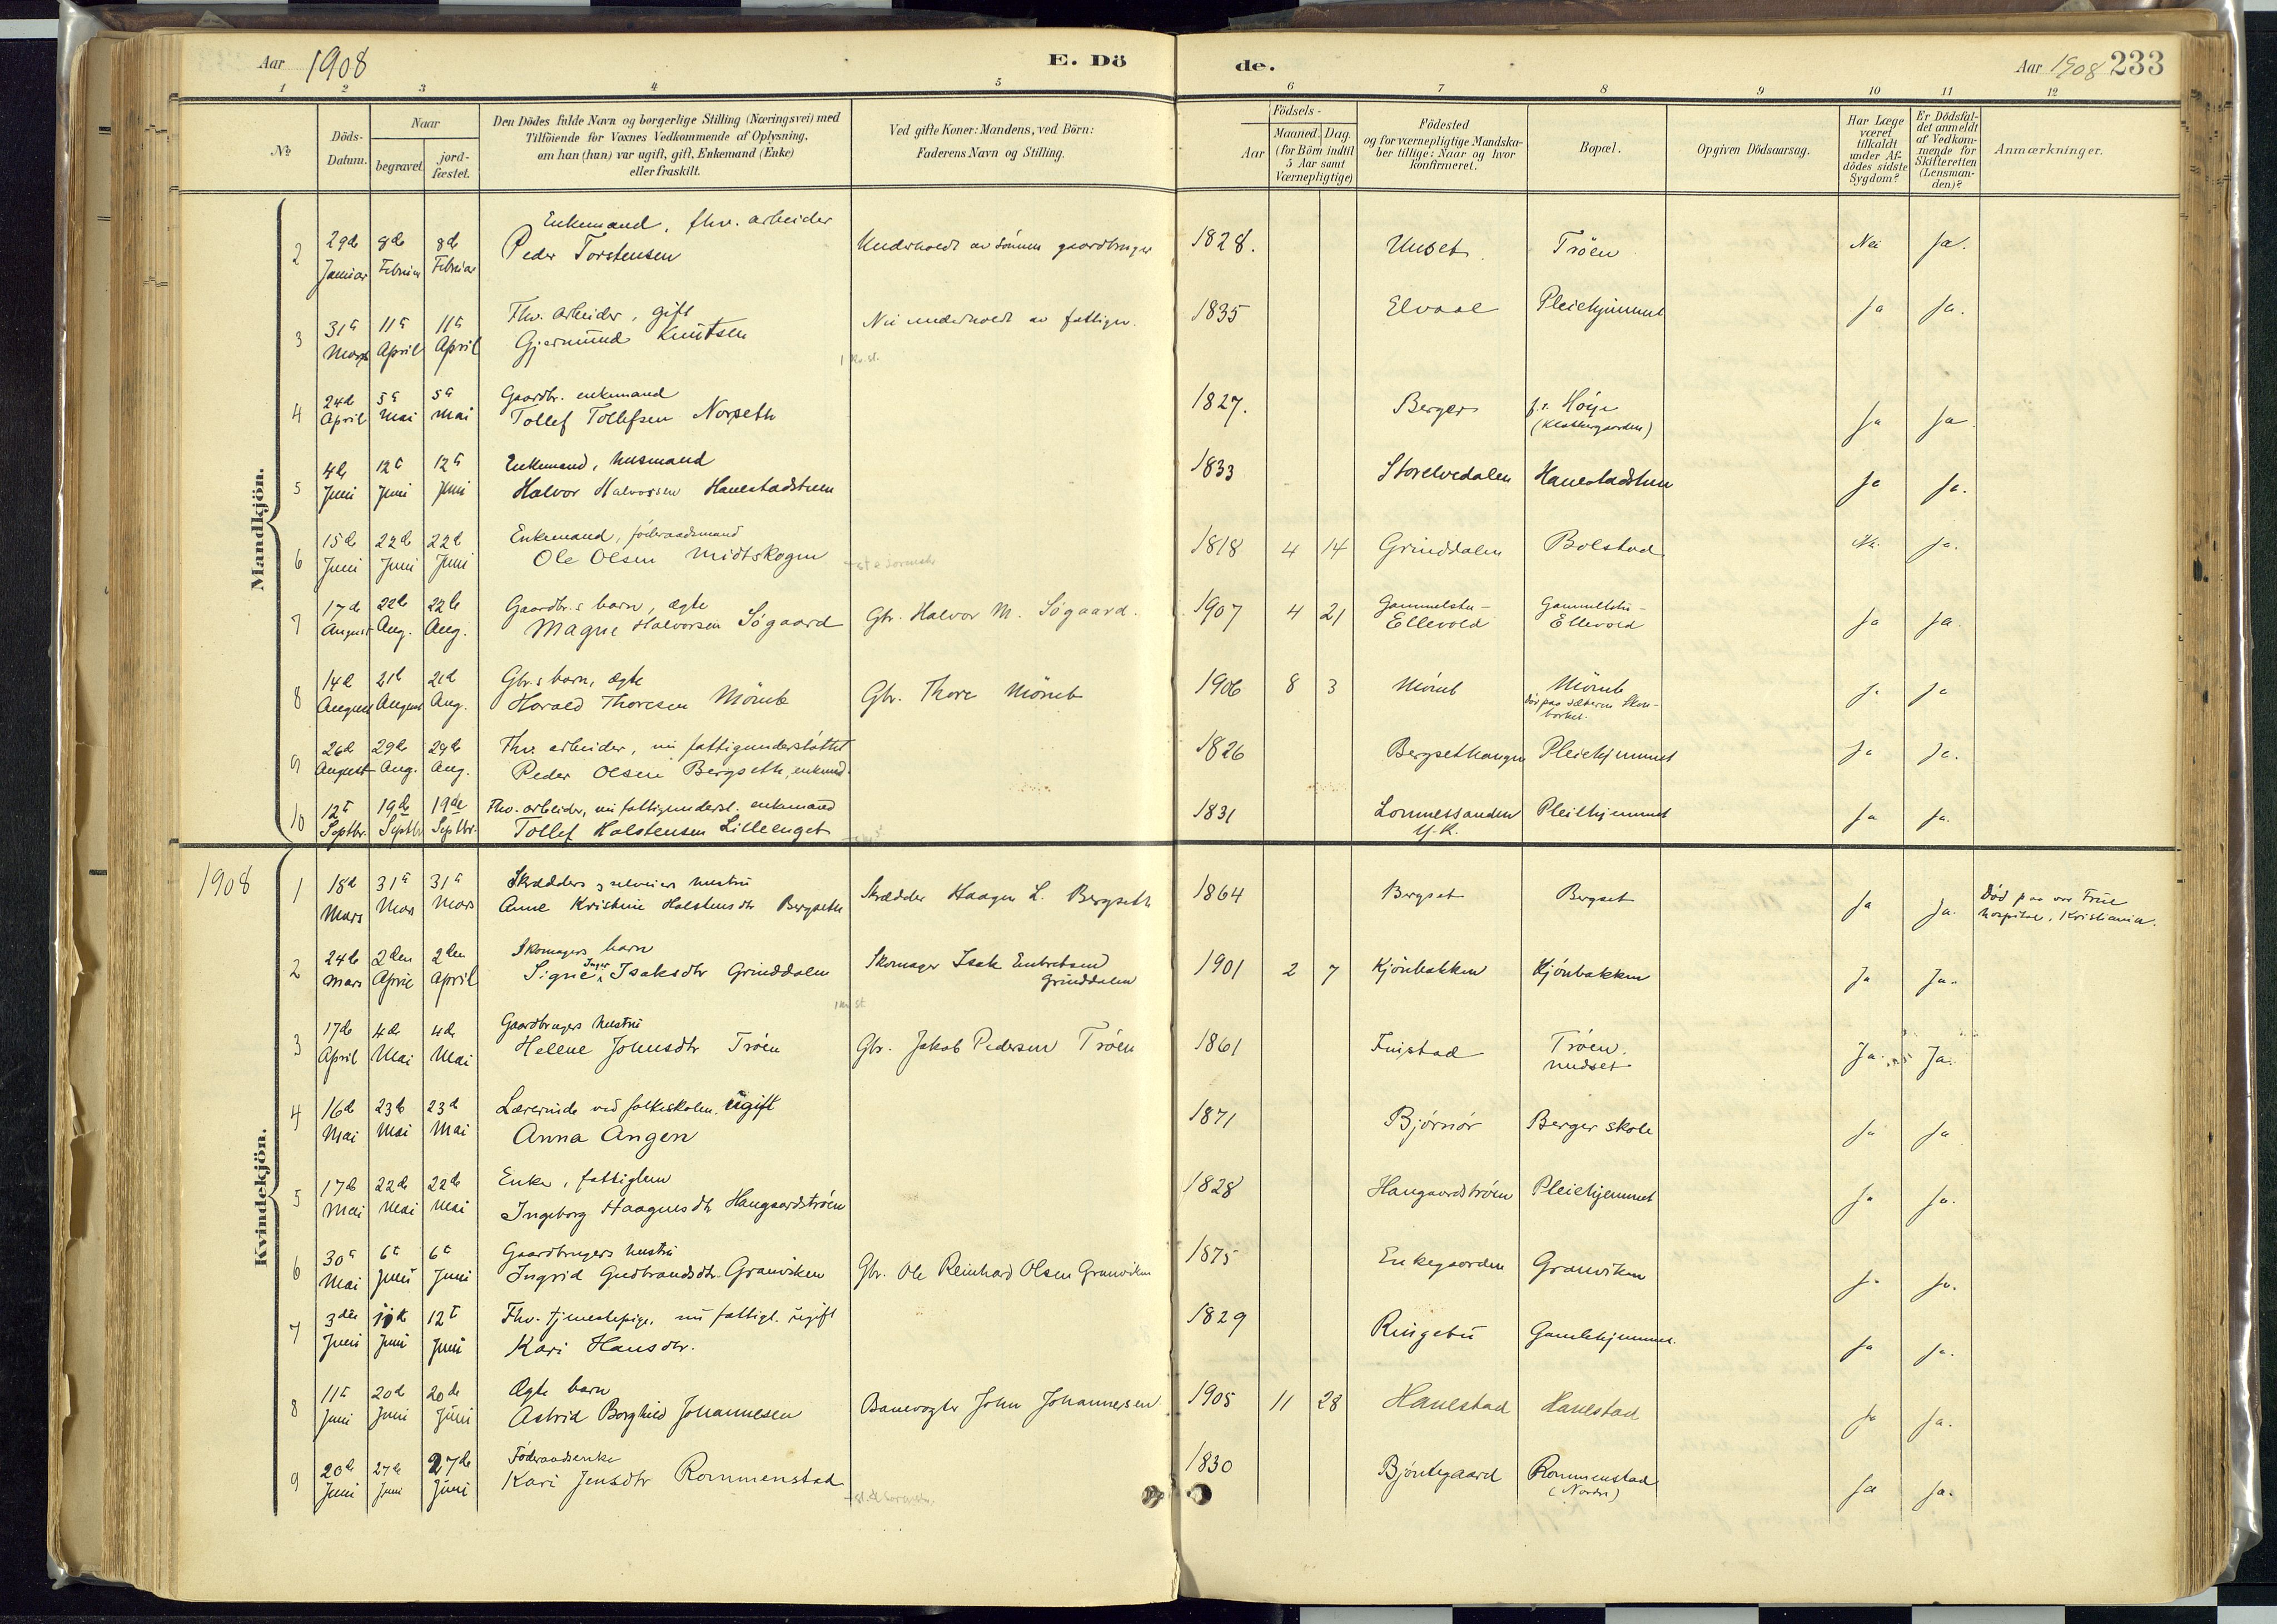 Aar 1908
E. Dö
de.
Aar 1908 233
1 2 3 4 5 6 7 8 9 10 11 12
No
Döds-
Datum.
Naar
begravet.
jord-
fæstet.
Den Dödes fulde Navn og borgerlige Stilling (Næringsvei) med
Tilföiende for Voxnes Vedkommende af Oplysning,
om han (hun) var ugift, gift, Enkemand (Enke)
eller fraskilt.
Ved gifte Koner: Mandens, ved Börn:
Faderens Navn og Stilling.
Födsels-
Aar
Maaned. Dag.
(for Börn indtil
5 Aar samt
Værnepligtige)
Födested
og for værnepligtige Mandska-
ber tillige: Naar og hvor
konfirmeret.
Bopæl.
Opgiven Dödsaarsag.
Har Læge
været
tilkaldt
under Af-
dödes sidste
Sygdom?
Er Dödsfal-
det anmeldt
af Vedkom-
mende for
Skifteretten
(Lensman-
den)?
Anmærkninger.
Mandkjön.
Enkemand, fhv. arbeider
2 29de 8de 8de Peder Torstensen Underholdt av sönnen gaardbruger 1828. Unset Tröen Nei Ja.
Januar Februar Februar
Fhv. arbeider, gift
3 31te 11te 11te Gjermund Knutsen Nu underholdt av fattigv. 1835 Elvaal Pleiehjemmet Ja Ja.
Mars April April
Gaardbr. enkemand
4 24de 5te 5te Tollef Tollefsen Norseth 1827. Berger f.t. Höye Ja Ja
April Mai Mai (Klokkergaarden)
Enkemand, husmand
5 4de 12te 12te Halvor Halvorsen Hanestadstuen 1833 Storelvedalen Hanestadstuen Ja Ja.
Juni Juni Juni
Enkemand, föderaadsmand
6 15de 22de 22de Ole Olsen Midtskogen 1818 4 14 Grinddalen Bolstad Nei Ja.
Juni Juni Juni
Gaardbr.s barn, ægte
7 17de 22de 22de Magne Halvorsen Sögaard Gbr. Halvor M. Sögaard. 1907 4 21 Gammelstu- Ellevold Gammelstu- Ellevold Ja Ja.
August Aug. Aug.
Gbr.s barn, ægte
8 14de 21de 21de Harald Thoresen Mömb Gbr. Thore Mömb 1906 8 3 Mömb Mömb Ja Ja
August August Aug. död paa sæteren
Fhv. arbeider, nu fattigunderstöttet
9 26de 29de 29de Peder Olsen Bergseth, enkemd. 1826 Bergsethaugen Pleiehjemmet Ja Ja.
August Aug. Aug.
Fhv. arbeider, nu fattigunderst. enkemand
10 12te 19de 19de Tollef Halstensen Lilleenget 1831 Lomnessanden Pleiehjemmet Ja Ja.
Septbr. Septbr. Septbr. Y.R.
1908
Kvindekjön.
Skrædders & selveiers hustru
1 18de 31te 31te Anne Kristine Halstensdtr Bergseth Skrædder Haagen L. Bergseth 1864 Bergset Bergset Ja Ja. Död paa vor Frue
Mars Mars Mars hospital, Kristiania.
Skomagers barn
2 24de 2den 2den Signe Inger Isaksdtr Grinddalen Skomager Isak Embretsen Grinddalen 1901 2 7 Kjönbakken Kjönbakken Ja Ja.
Mars April April
Gaardbrugers hustru
3 17de 4de 4de Helene Johnsdtr Tröen Gbr. Jakob Pedersen Tröen 1861 Fuistad Tröen. Ja. Ja.
April Mai Mai
Lærerinde ved folkeskolen. ugift
4 16de 23de 23de Anna Angen 1871 Björnör Berger skole Ja Ja
Mai Mai Mai
Enke, fattiglem
5 17de 22de 22de Ingeborg Haagensdtr Haugaardströen 1828 Haugaardströen Pleiehjemmet Ja Ja.
Mai Mai Mai
Gaardbrugers hustru
6 30te 6te 6te Ingrid Gudbrandsdtr. Granviken Gbr. Ole Reinhard Olsen Granviken 1875 Enkegaarden Granviken Ja Ja.
Mai Juni Juni
Fhv. tjenestepige, nu fattigl. ugift
7 3die 12te Kari Hansdtr. 1829 Ringebu Gamlehjemmet. Ja Ja.
Juni Juni Juni
Ægte barn
8 11te 20de 20de Astrid Borghild Johannesen Banevogter John Johannesen 1905 11 28 Hanestad Hanestad Ja Ja.
Juni Juni Juni
Föderaadsenke
9 20de 27de 27de Kari Jensdtr Rommenstad 1830 Bjöntegaard Rommenstad Ja Ja.
Juni Juni Juni (Nordre)